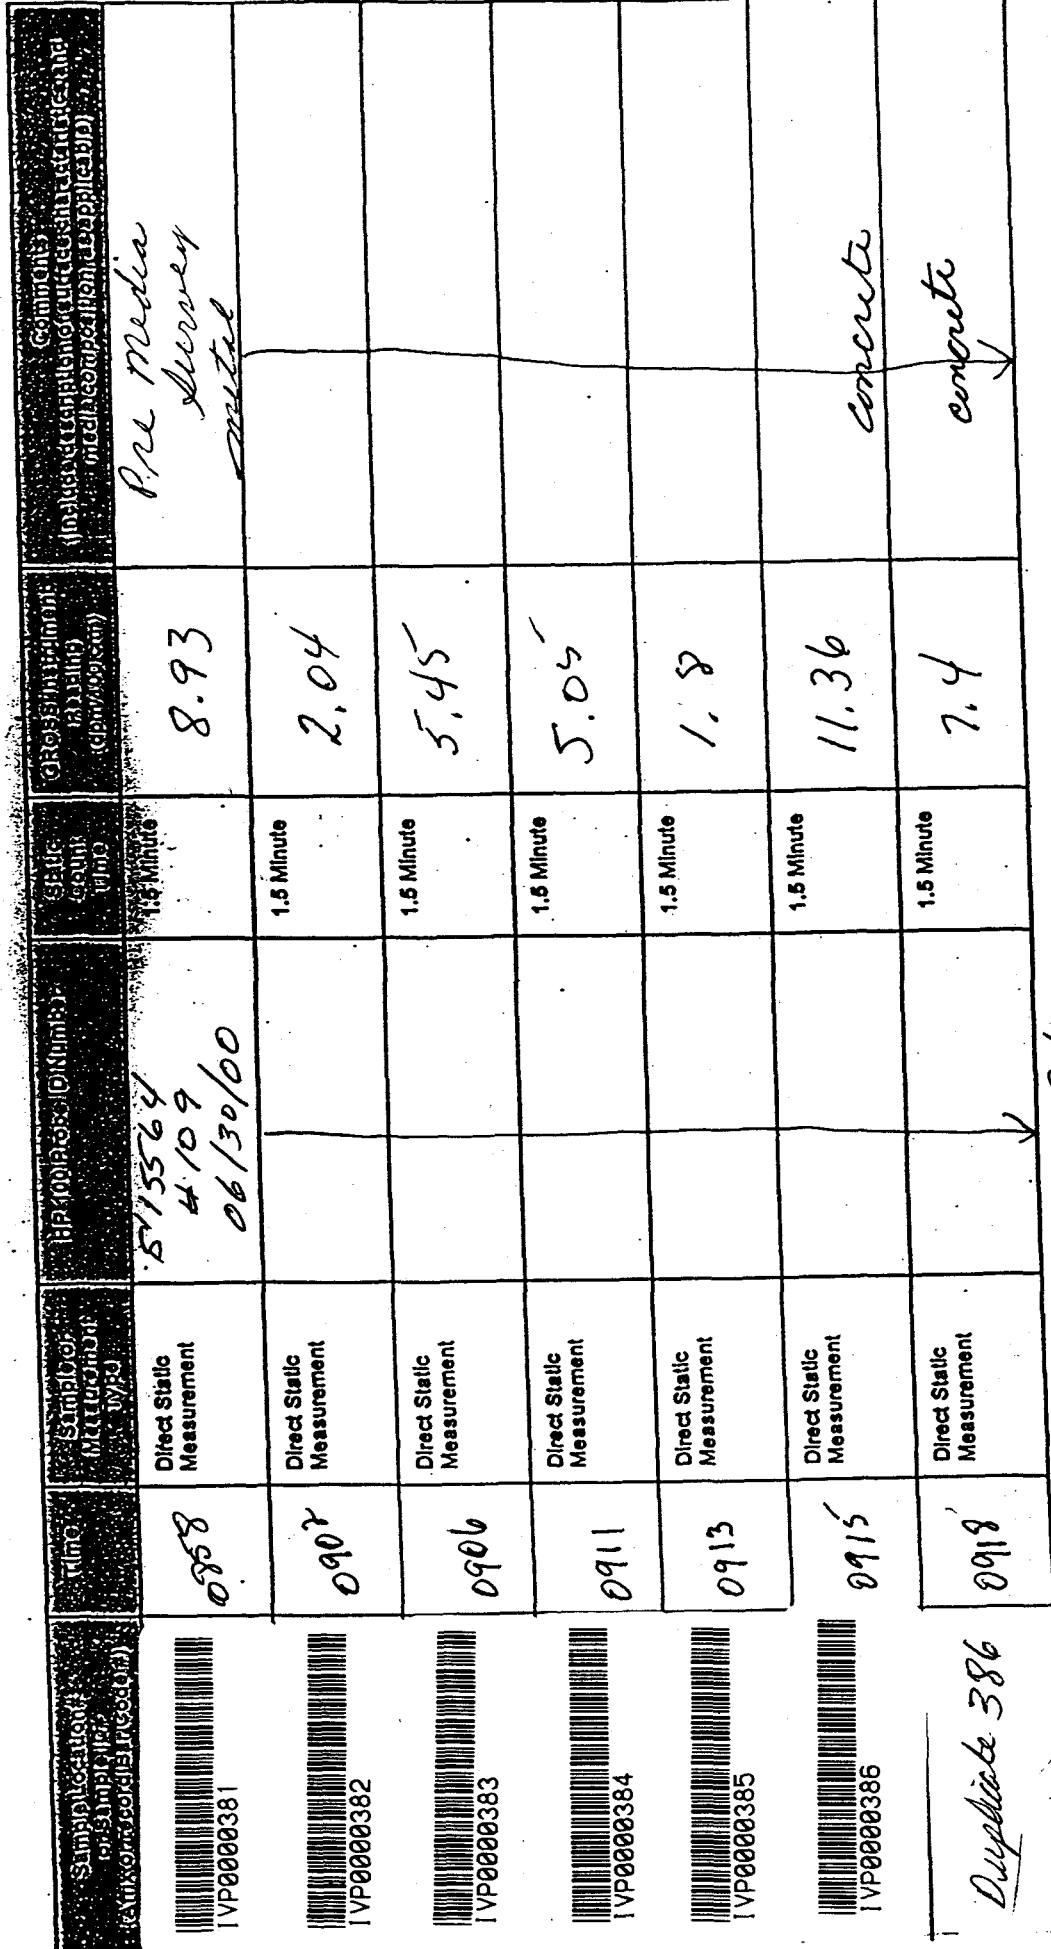 Sample Location
or Sample No.
(Affix or record Bar Code #)
Time
Sample or
Measurement
Type
HP-100 Probe ID Number
Static
Count
Time
GROSS Instrument
Reading
(dpm/100 cm)
Comments
(Include description of surface characteristics and
media composition as applicable)
IVP0000381
0858
Direct Static
Measurement
515564
#109
06/30/00
1.5 Minute
8.93
Pre Media
Survey
metal
IVP0000382
0902
Direct Static
Measurement
1.5 Minute
2.04
IVP0000383
0906
Direct Static
Measurement
1.5 Minute
5.45
IVP0000384
0911
Direct Static
Measurement
1.5 Minute
5.05
IVP0000385
0913
Direct Static
Measurement
1.5 Minute
1.8
IVP0000386
0915
Direct Static
Measurement
1.5 Minute
11.36
concrete
Duplicate 386
0918
Direct Static
Measurement
1.5 Minute
7.4
concrete